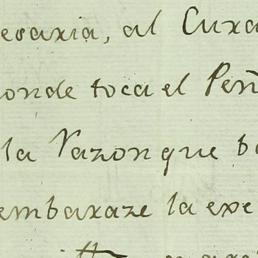 esaria, al Cura
onde toca el Peñ
la razon que b
embaraze la exe